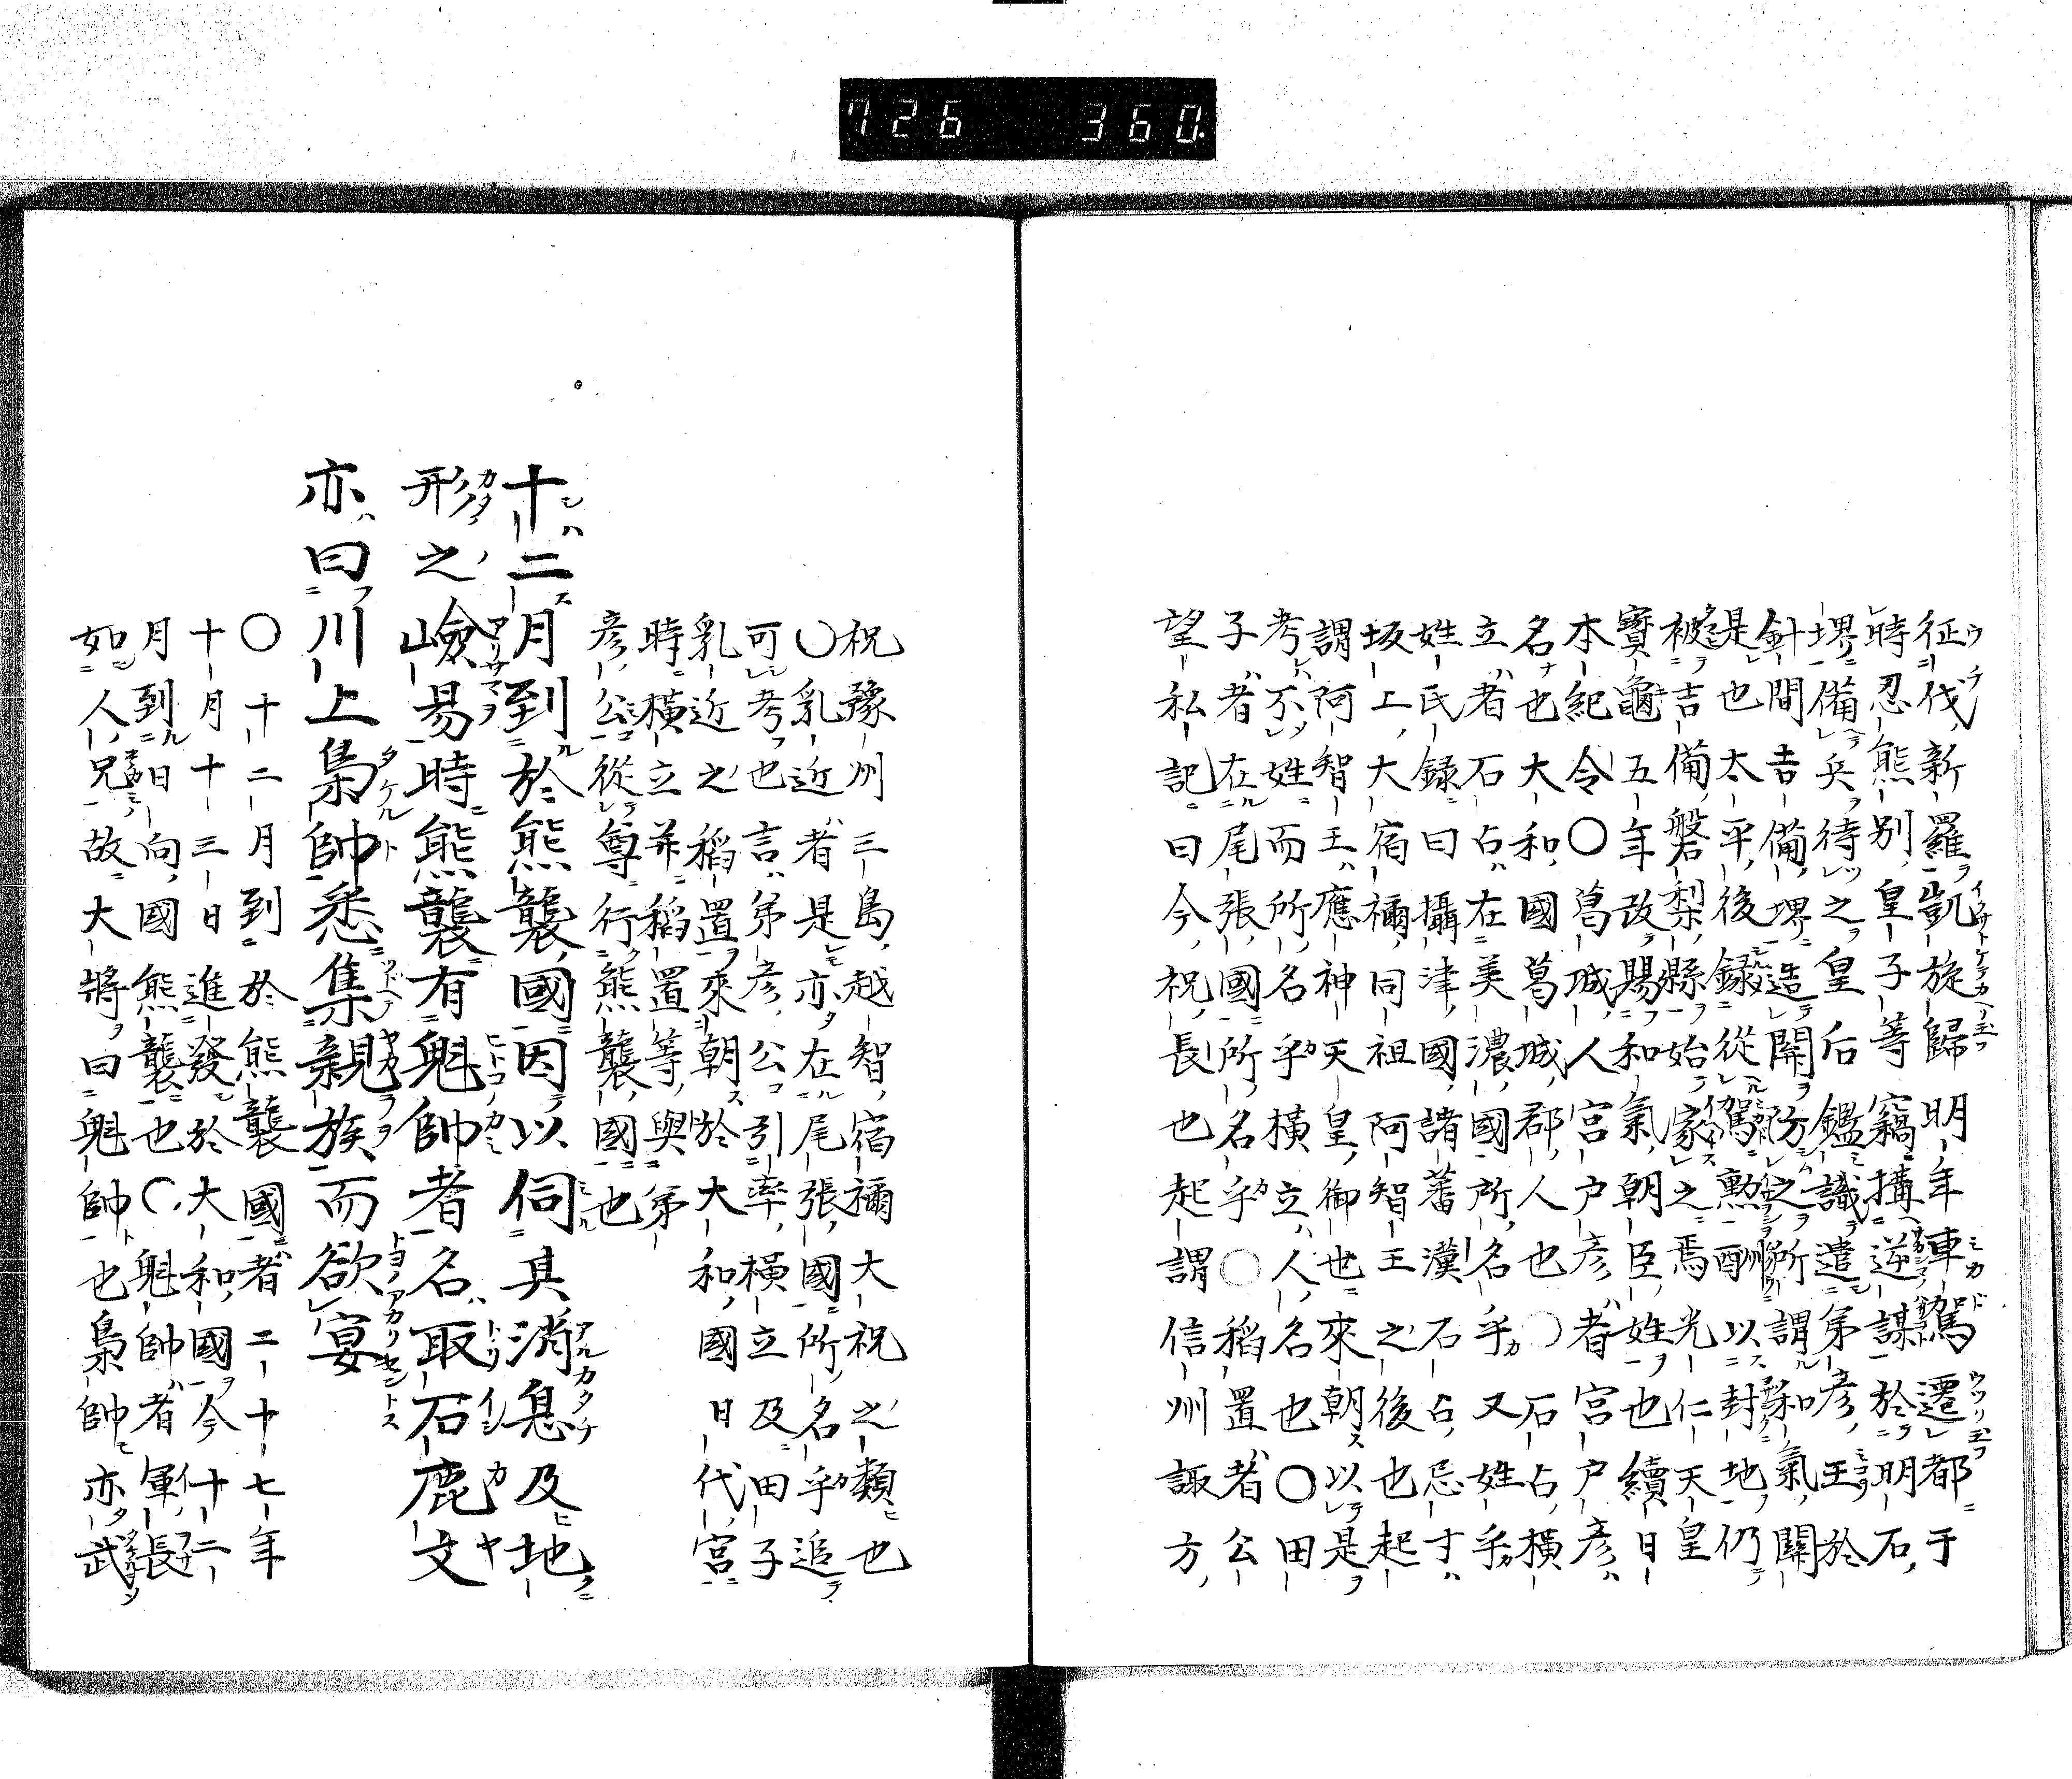 726 360.
征伐新羅凱旋歸明年車駕遷都于
時忍熊別皇子等竊搆逆謀於明石
堺備兵待之皇后鑑識遣弟彦王於
針間吉備堺造關防之所謂和氣關
是也太平後録從駕勲酬以封地仍
被吉備磐梨縣始家之焉光仁天皇
寶龜五年改賜和氣朝臣姓也續日
本紀令〇葛城人宮戸彦者宮戸彦
名也大和國葛城郡人也〇石占横
立者石占在美濃國所名乎又姓乎
姓氏録曰攝津國諸蕃漢石占忌寸
坂上大宿禰同祖阿智王之後也起
謂阿智王應神天皇御世來朝以是
考不姓而所名乎横立人名也〇田
子者在尾張國所名乎〇稻置者公
望私記曰今祝長也起謂信州諏方
祝豫州三島越智宿禰大祝之類也
〇乳近者是亦在尾張國所名乎追
可考也言弟彦公引率横立及田子
乳近之稻置來朝於大和國日代宮
時横立并稻置等與弟
彦公從尊行熊襲國也
十二月到於熊襲國因以伺其消息及地
形之嶮易時熊襲有魁帥者名取石鹿文
亦曰川上梟帥悉集親族而欲宴
〇十二月到於熊襲國者二十七年
十月十三日進發於大和國今十二
月到日向國熊襲也〇魁帥者軍長
如人兄故大將曰魁帥也梟帥亦武